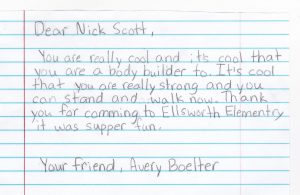 Dear Nick Scott,
You are really cool and it's cool that
you are a body builder to. It's cool
that you are really strong and you
can stand and walk now. Thank
you for comming to Ellsworth Elementry
it was supper fun.
Your friend, Avery Boelter